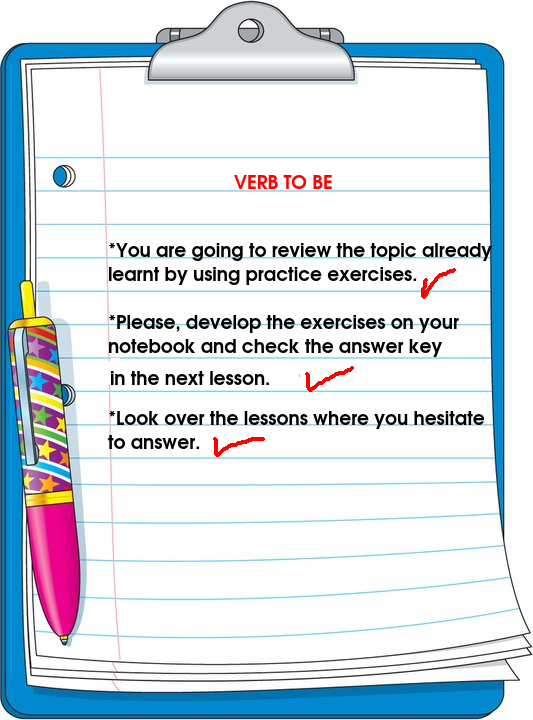 VERB TO BE
*You are going to review the topic already
learnt by using practice exercises.
*Please, develop the exercises on your
notebook and check the answer key
in the next lesson.
*Look over the lessons where you hesitate
to answer.